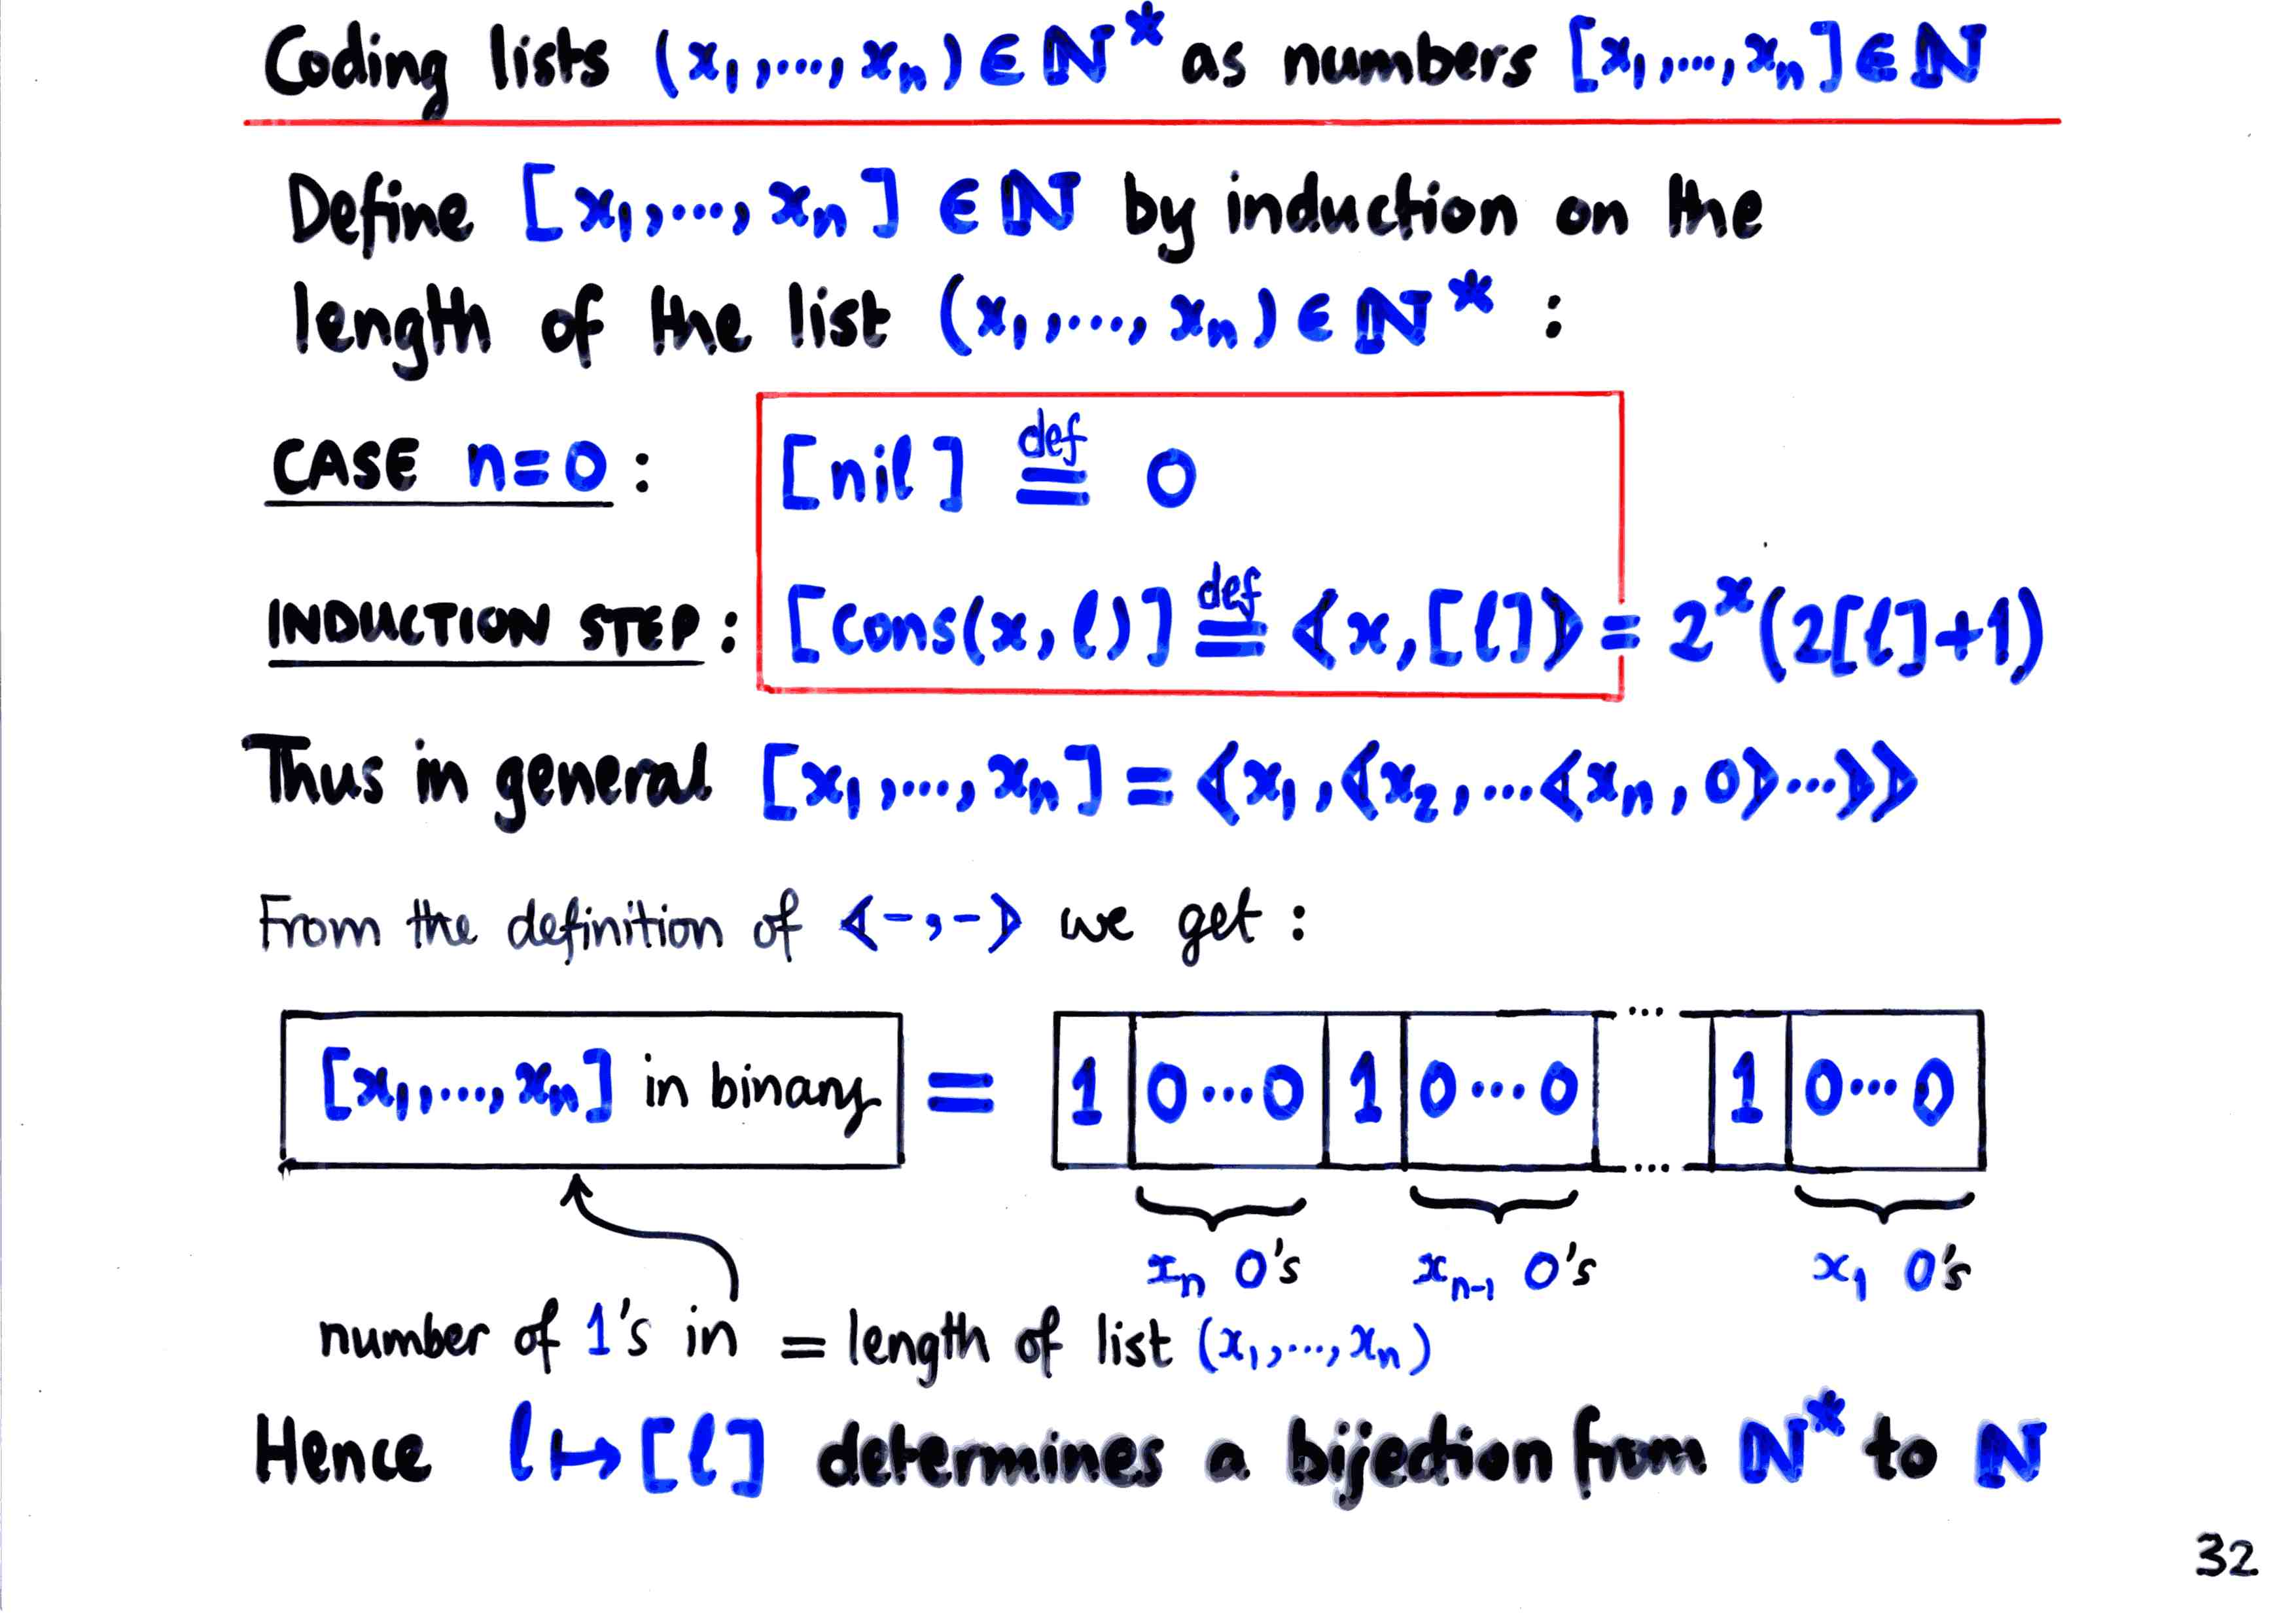 Coding lists (x₁,...,xₙ) ∈ ℕ* as numbers [x₁,...,xₙ] ∈ ℕ
Define [x₁,...,xₙ] ∈ ℕ by induction on the
length of the list (x₁,...,xₙ) ∈ ℕ* :
CASE n=0 : [nil] ≝ 0
INDUCTION STEP : [cons(x,ℓ)] ≝ ⦉x,[ℓ]⦊ = 2ˣ(2[ℓ]+1)
Thus in general [x₁,...,xₙ] = ⦉x₁,⦉x₂,...⦉xₙ,0⦊...⦊⦊
From the definition of ⦉-,-⦊ we get :
[x₁,...,xₙ] in binary = 1 0...0 1 0...0 ... 1 0...0
xₙ 0's xₙ₋₁ 0's x₁ 0's
number of 1's in = length of list (x₁,...,xₙ)
Hence ℓ ↦ [ℓ] determines a bijection from ℕ* to ℕ
32